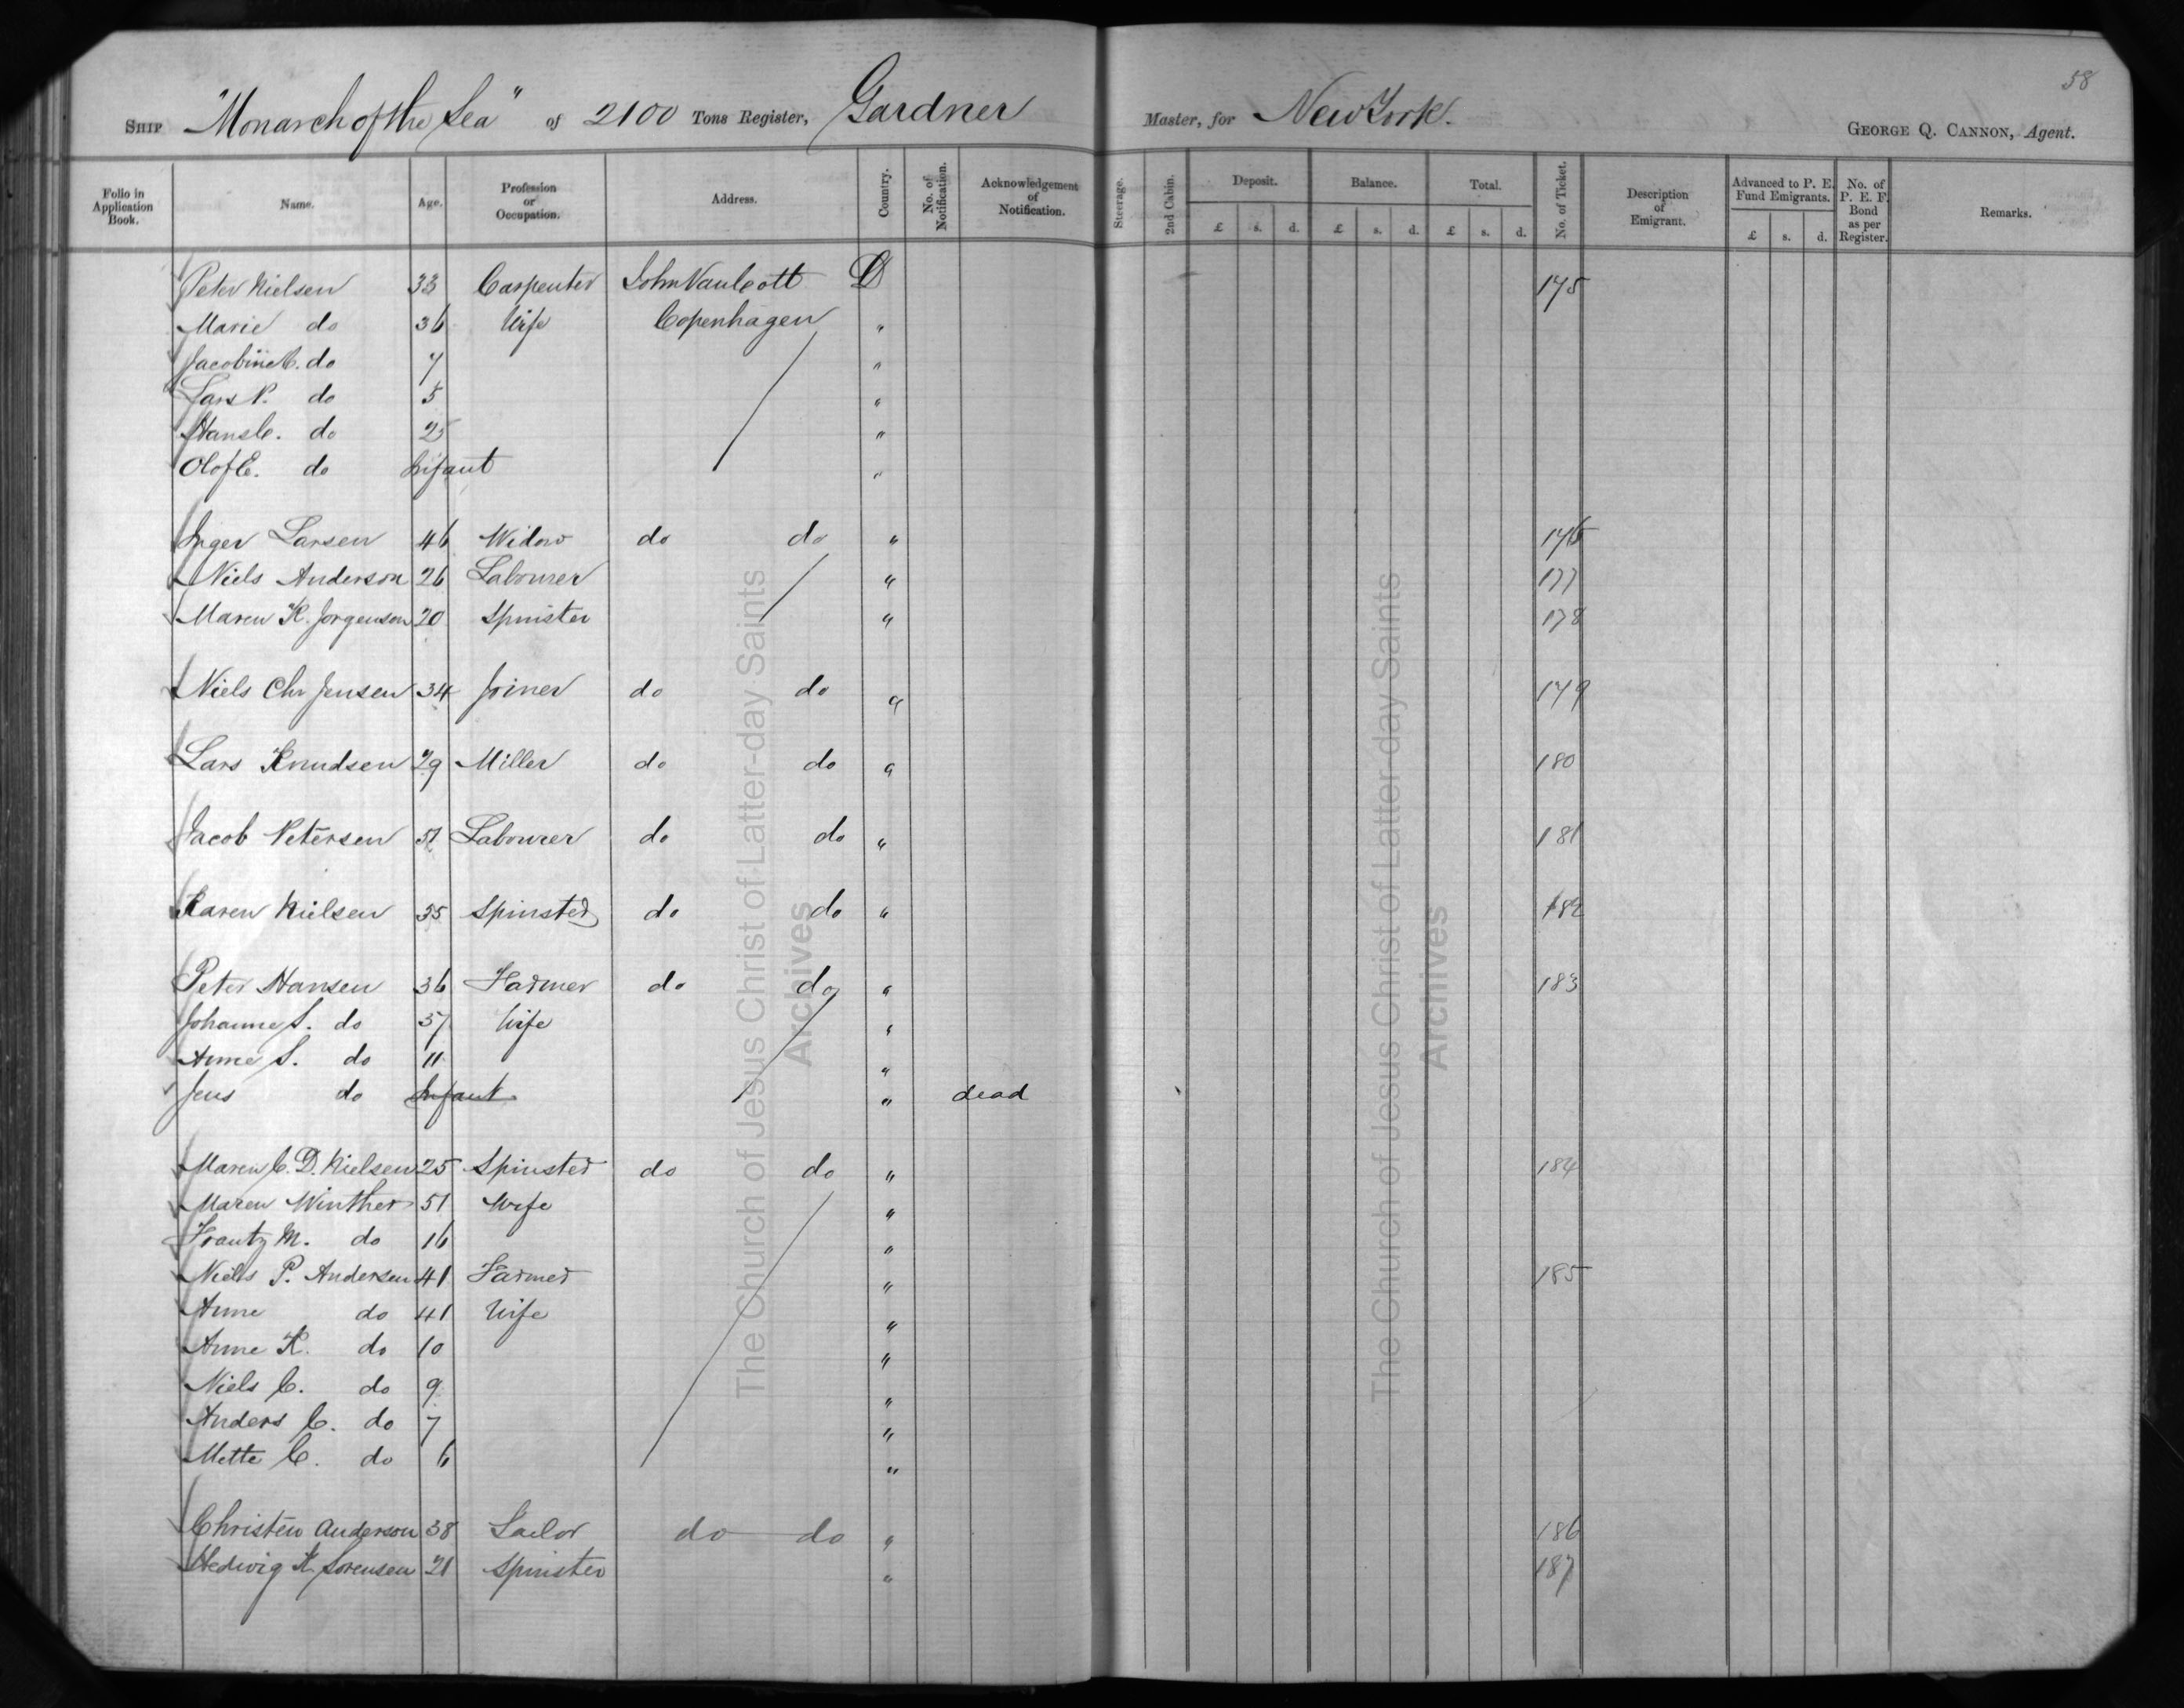 58
SHIP "Monarch of the Sea" of 2100 Tons Register, Gardner Master, for New York. GEORGE Q. CANNON, Agent.
Folio in Application Book. Name. Age. Profession or Occupation. Address. Country. No. of Notification. Acknowledgement of Notification. Steerage. 2nd Cabin. Deposit. Balance. Total. No. of Ticket. Description of Emigrant. Advanced to P. E. Fund Emigrants. No. of P. E. F. Bond as per Register. Remarks.
£ s. d. £ s. d. £ s. d. £ s. d.
Peter Nielsen 33 Carpenter John Van Cott D 175
Marie do 36 Wife Copenhagen "
Jacobine C. do 7 "
Lars P. do 5 "
Hans C. do 25 "
Olof E. do Infant "
Inger Larsen 46 Widow do do " 176
Niels Anderson 26 Labourer " 177
Maren K. Jorgenson 20 Spinster " 178
Niels Chr Jensen 34 Joiner do do " 179
Lars Knudsen 29 Miller do do " 180
Jacob Petersen 51 Labourer do do " 181
Karen Nielsen 35 Spinster do do " 182
Peter Hansen 36 Farmer do do " 183
Johanne S. do 37 Wife "
Anne S. do 11 "
Jens do Infant " dead
Maren C. D. Nielsen 25 Spinster do do " 184
Maren Winther 51 Wife "
Frantz M. do 16 "
Niels P. Andersen 41 Farmer " 185
Anne do 41 Wife "
Anne K. do 10 "
Niels C. do 9 "
Anders C. do 7 "
Mette C. do 6 "
Christen Anderson 38 Sailor do do " 186
Hedwig K. Sorensen 21 Spinster " 187
The Church of Jesus Christ of Latter-day Saints
Archives
The Church of Jesus Christ of Latter-day Saints
Archives